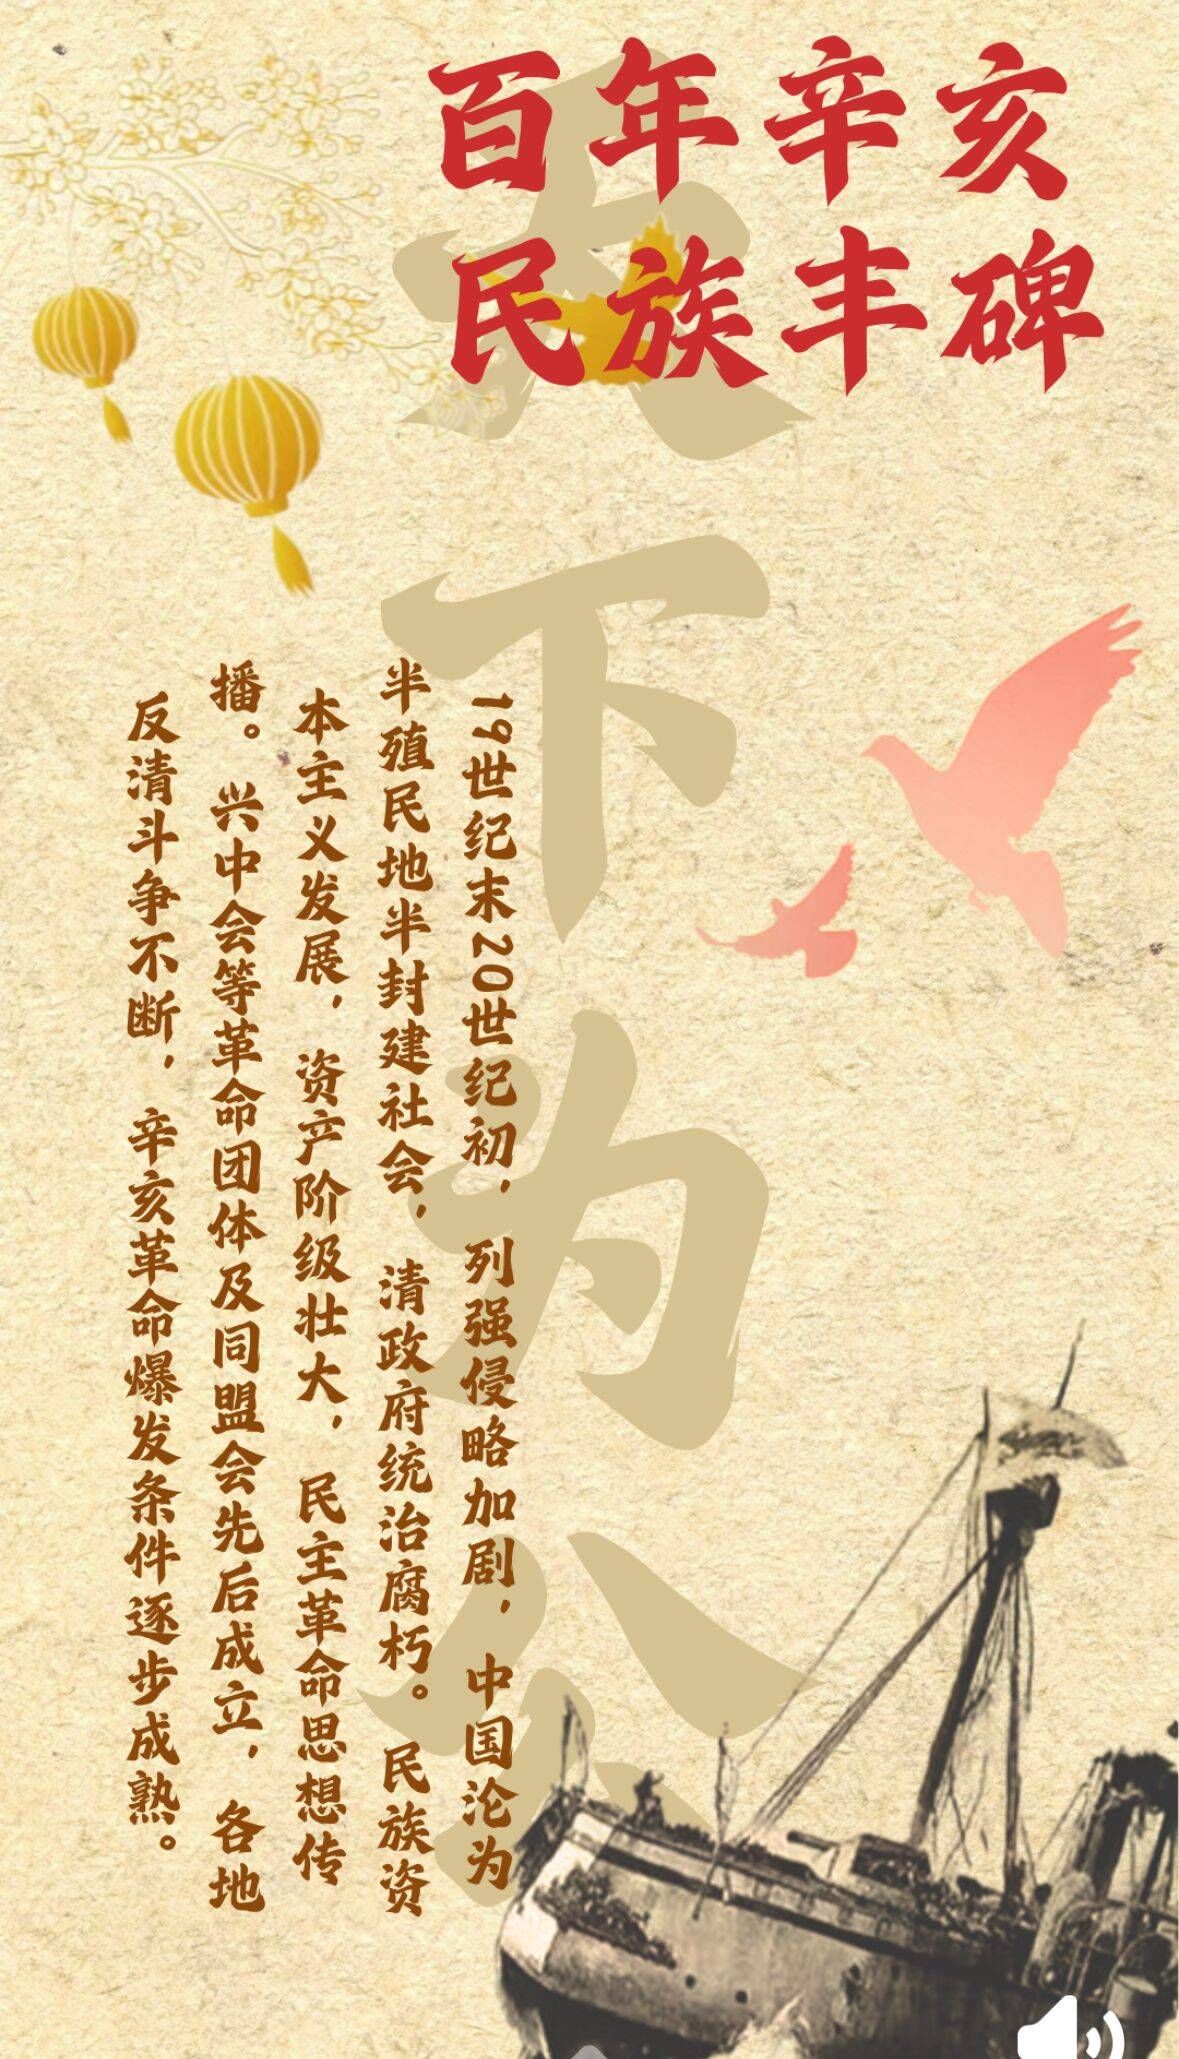 百年辛亥
民族丰碑
天下为公
19世纪末20世纪初，列强侵略加剧，中国沦为
半殖民地半封建社会，清政府统治腐朽。民族资
本主义发展，资产阶级壮大，民主革命思想传
播。兴中会等革命团体及同盟会先后成立，各地
反清斗争不断，辛亥革命爆发条件逐步成熟。